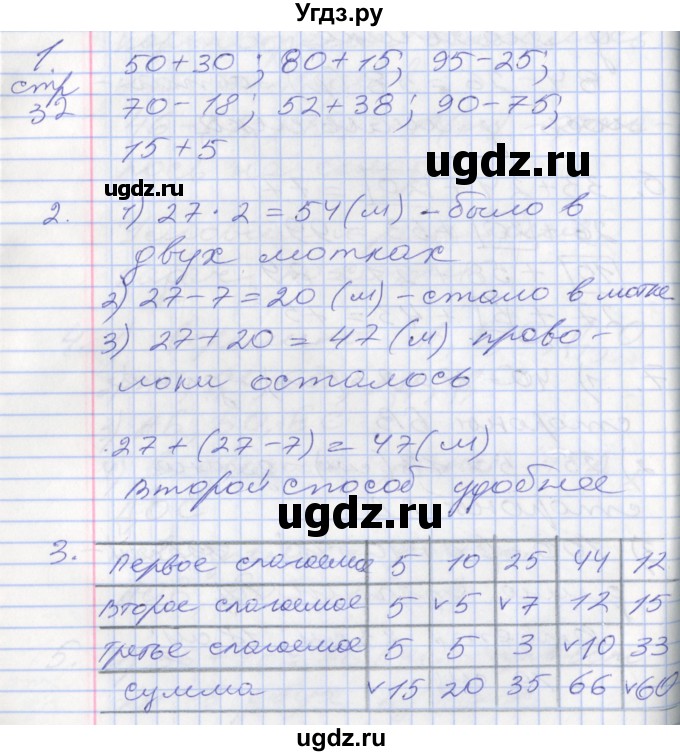 Угдз.ру
1 50+30; 80+15; 95-25;
стр
32 70-18; 52+38; 90-75;
15+5
ugdz.ru
ugdz.ru
2. 1) 27·2=54(м) - было в
двух мотках
2) 27-7=20 (м) - стало в мотке
3) 27+20=47(м) прово-
локи осталось
27+(27-7)=47(м)
Второй способ удобнее
ugdz.ru
ugdz.ru
3. Первое слагаемое 5 10 25 44 12
Второе слагаемое 5 v5 v7 12 15
Третье слагаемое 5 5 3 v10 33
Сумма v15 20 35 66 v60
ugdz.ru
ugdz.ru